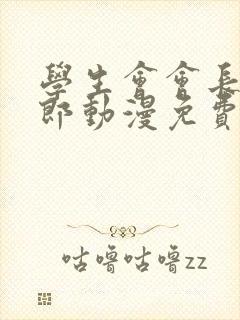 學生會會長
郎動漫免費
咕嚕咕嚕zz